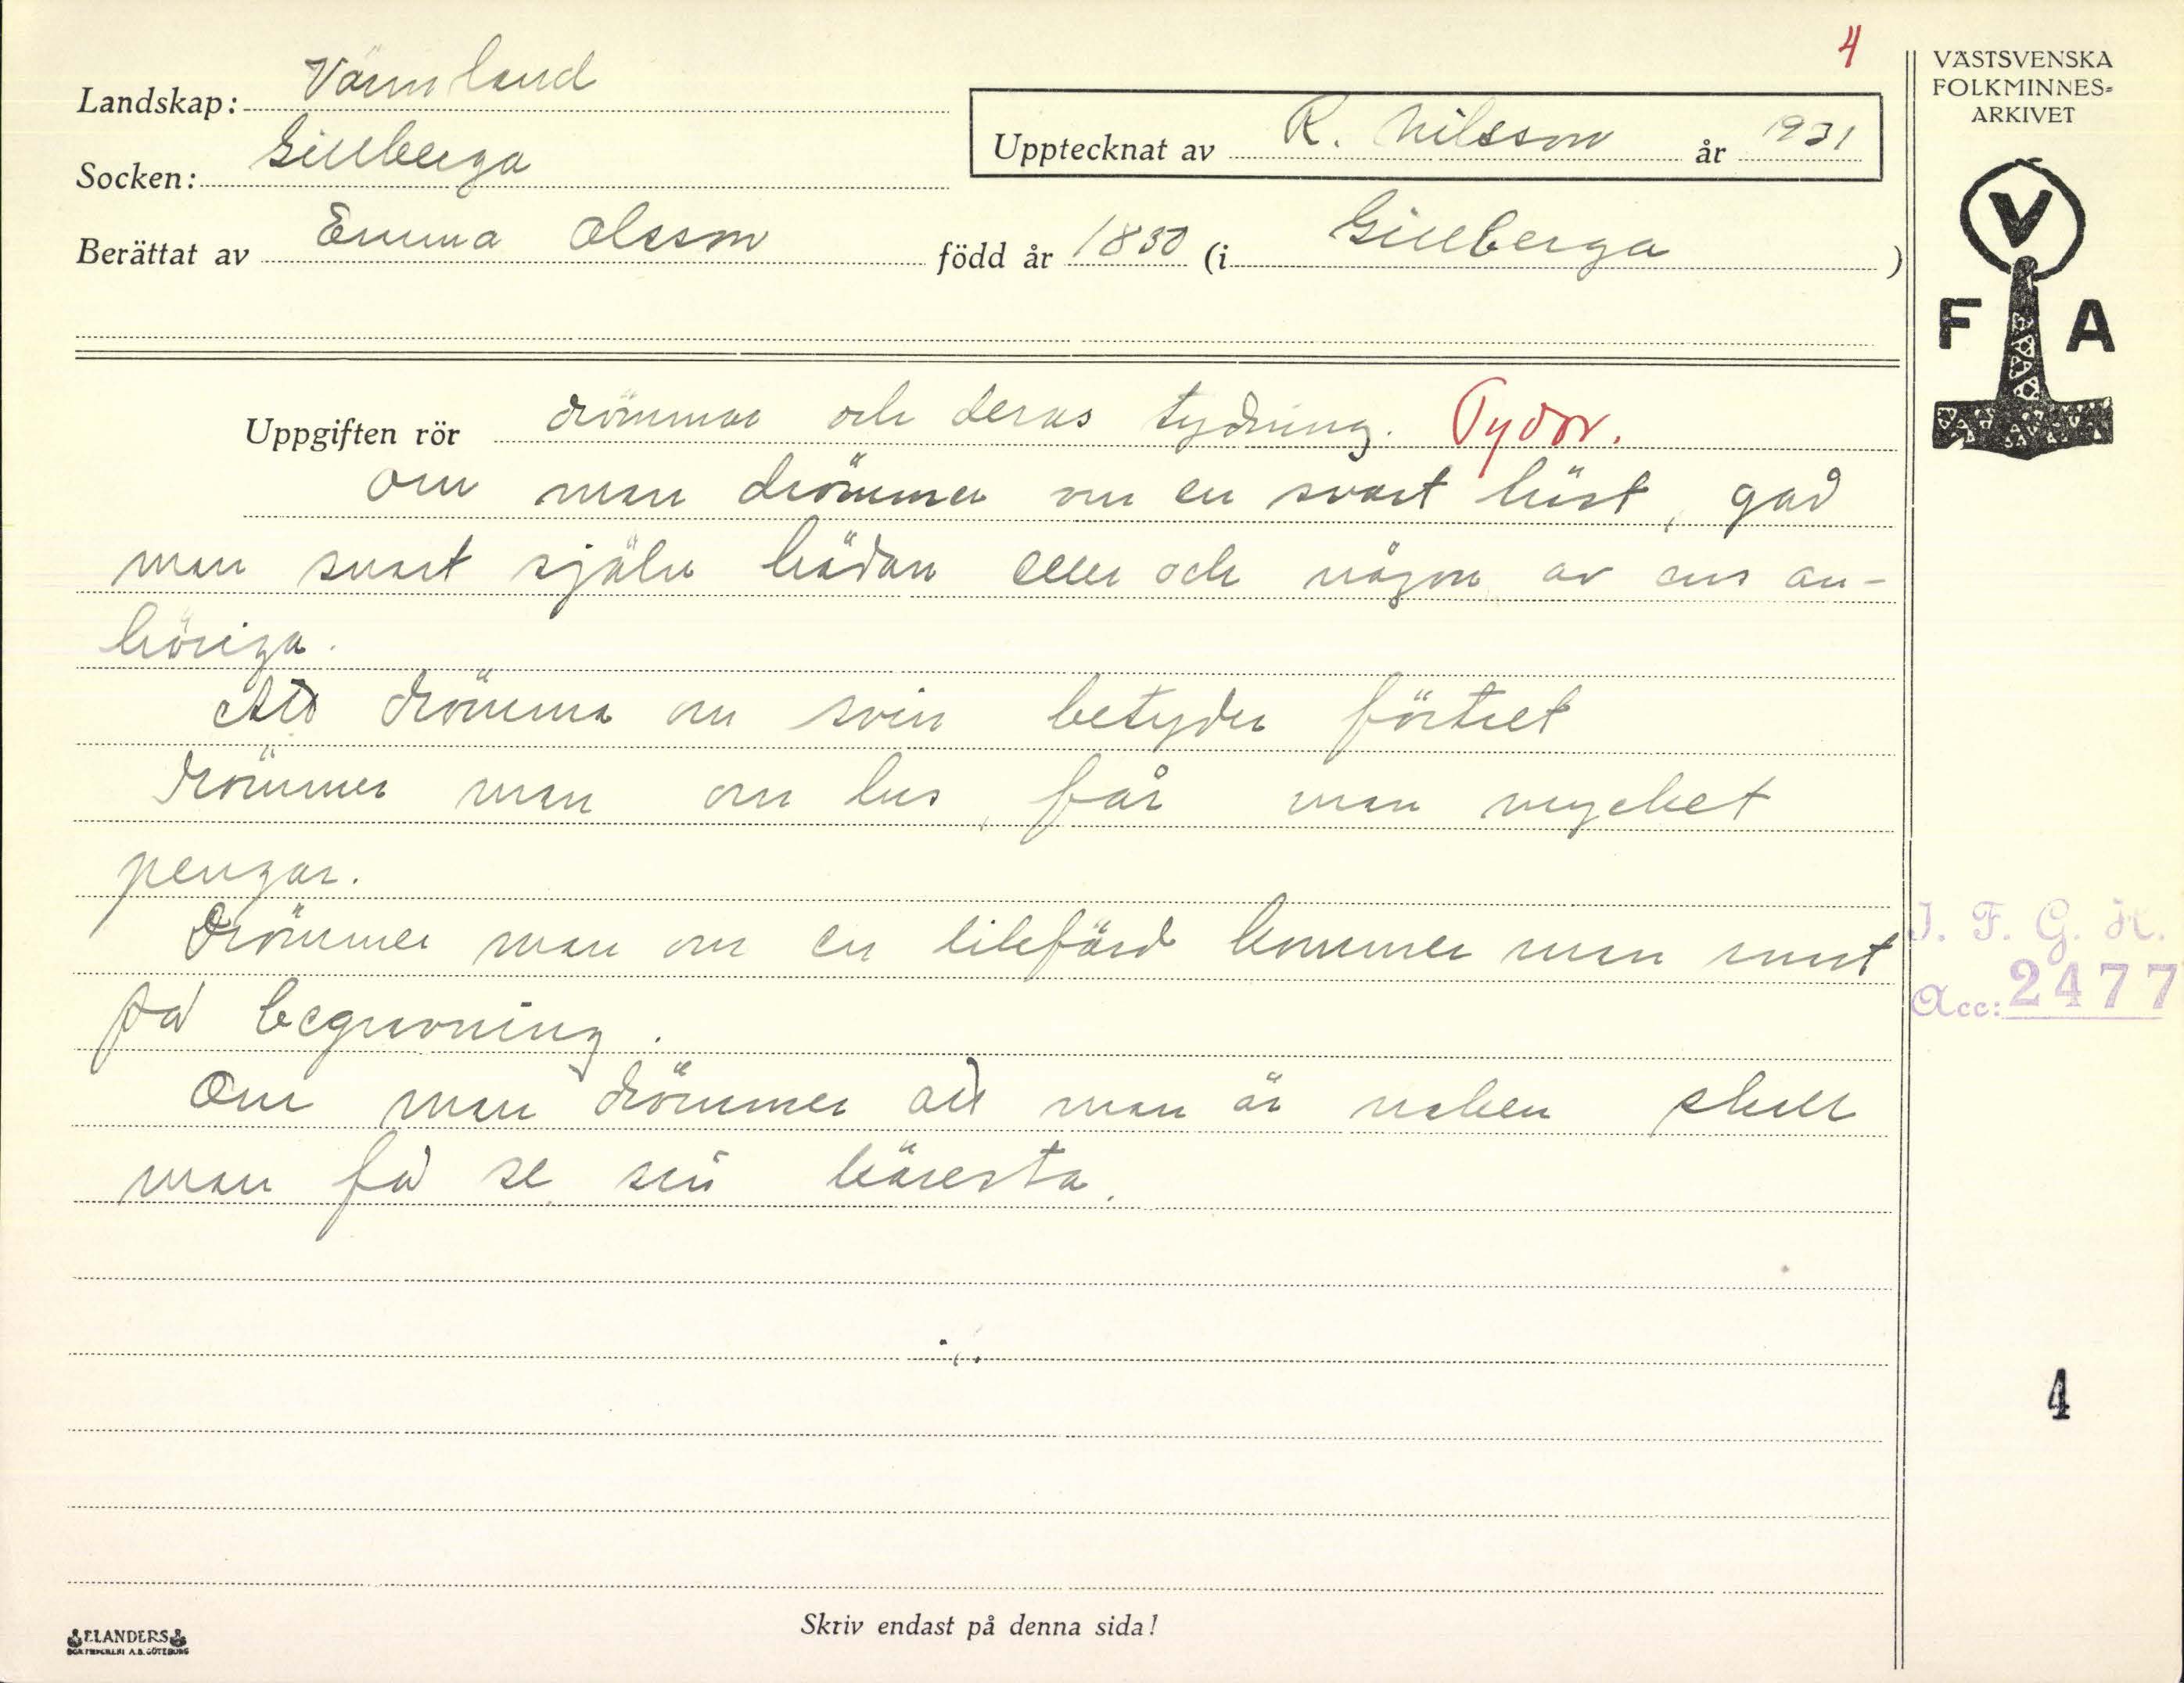 4
VÄSTSVENSKA
FOLKMINNES=
ARKIVET
Landskap: Värmland
Upptecknat av R. Nilsson år 1931
Socken: Gillberga
Berättat av Emma Olsson född år 1850 (i Gillberga )
V
F A
Uppgiften rör drömmar och deras tydning. Tydor.
Om man drömmer om en svart häst, går
man snart själv hädan eller och någon av ens an-
höriga.
Att drömma om svin betyder förtret
Drömmer man om lus, får man mycket
pengar.
Drömmer man om en likfärd kommer man snart
på begravning.
Om man drömmer att man är naken skall
man få se sin käresta.
I. F. G. H.
Acc: 2477
4
Skriv endast på denna sida!
ELANDERS
BOKTRYCKERI A.B. GÖTEBORG